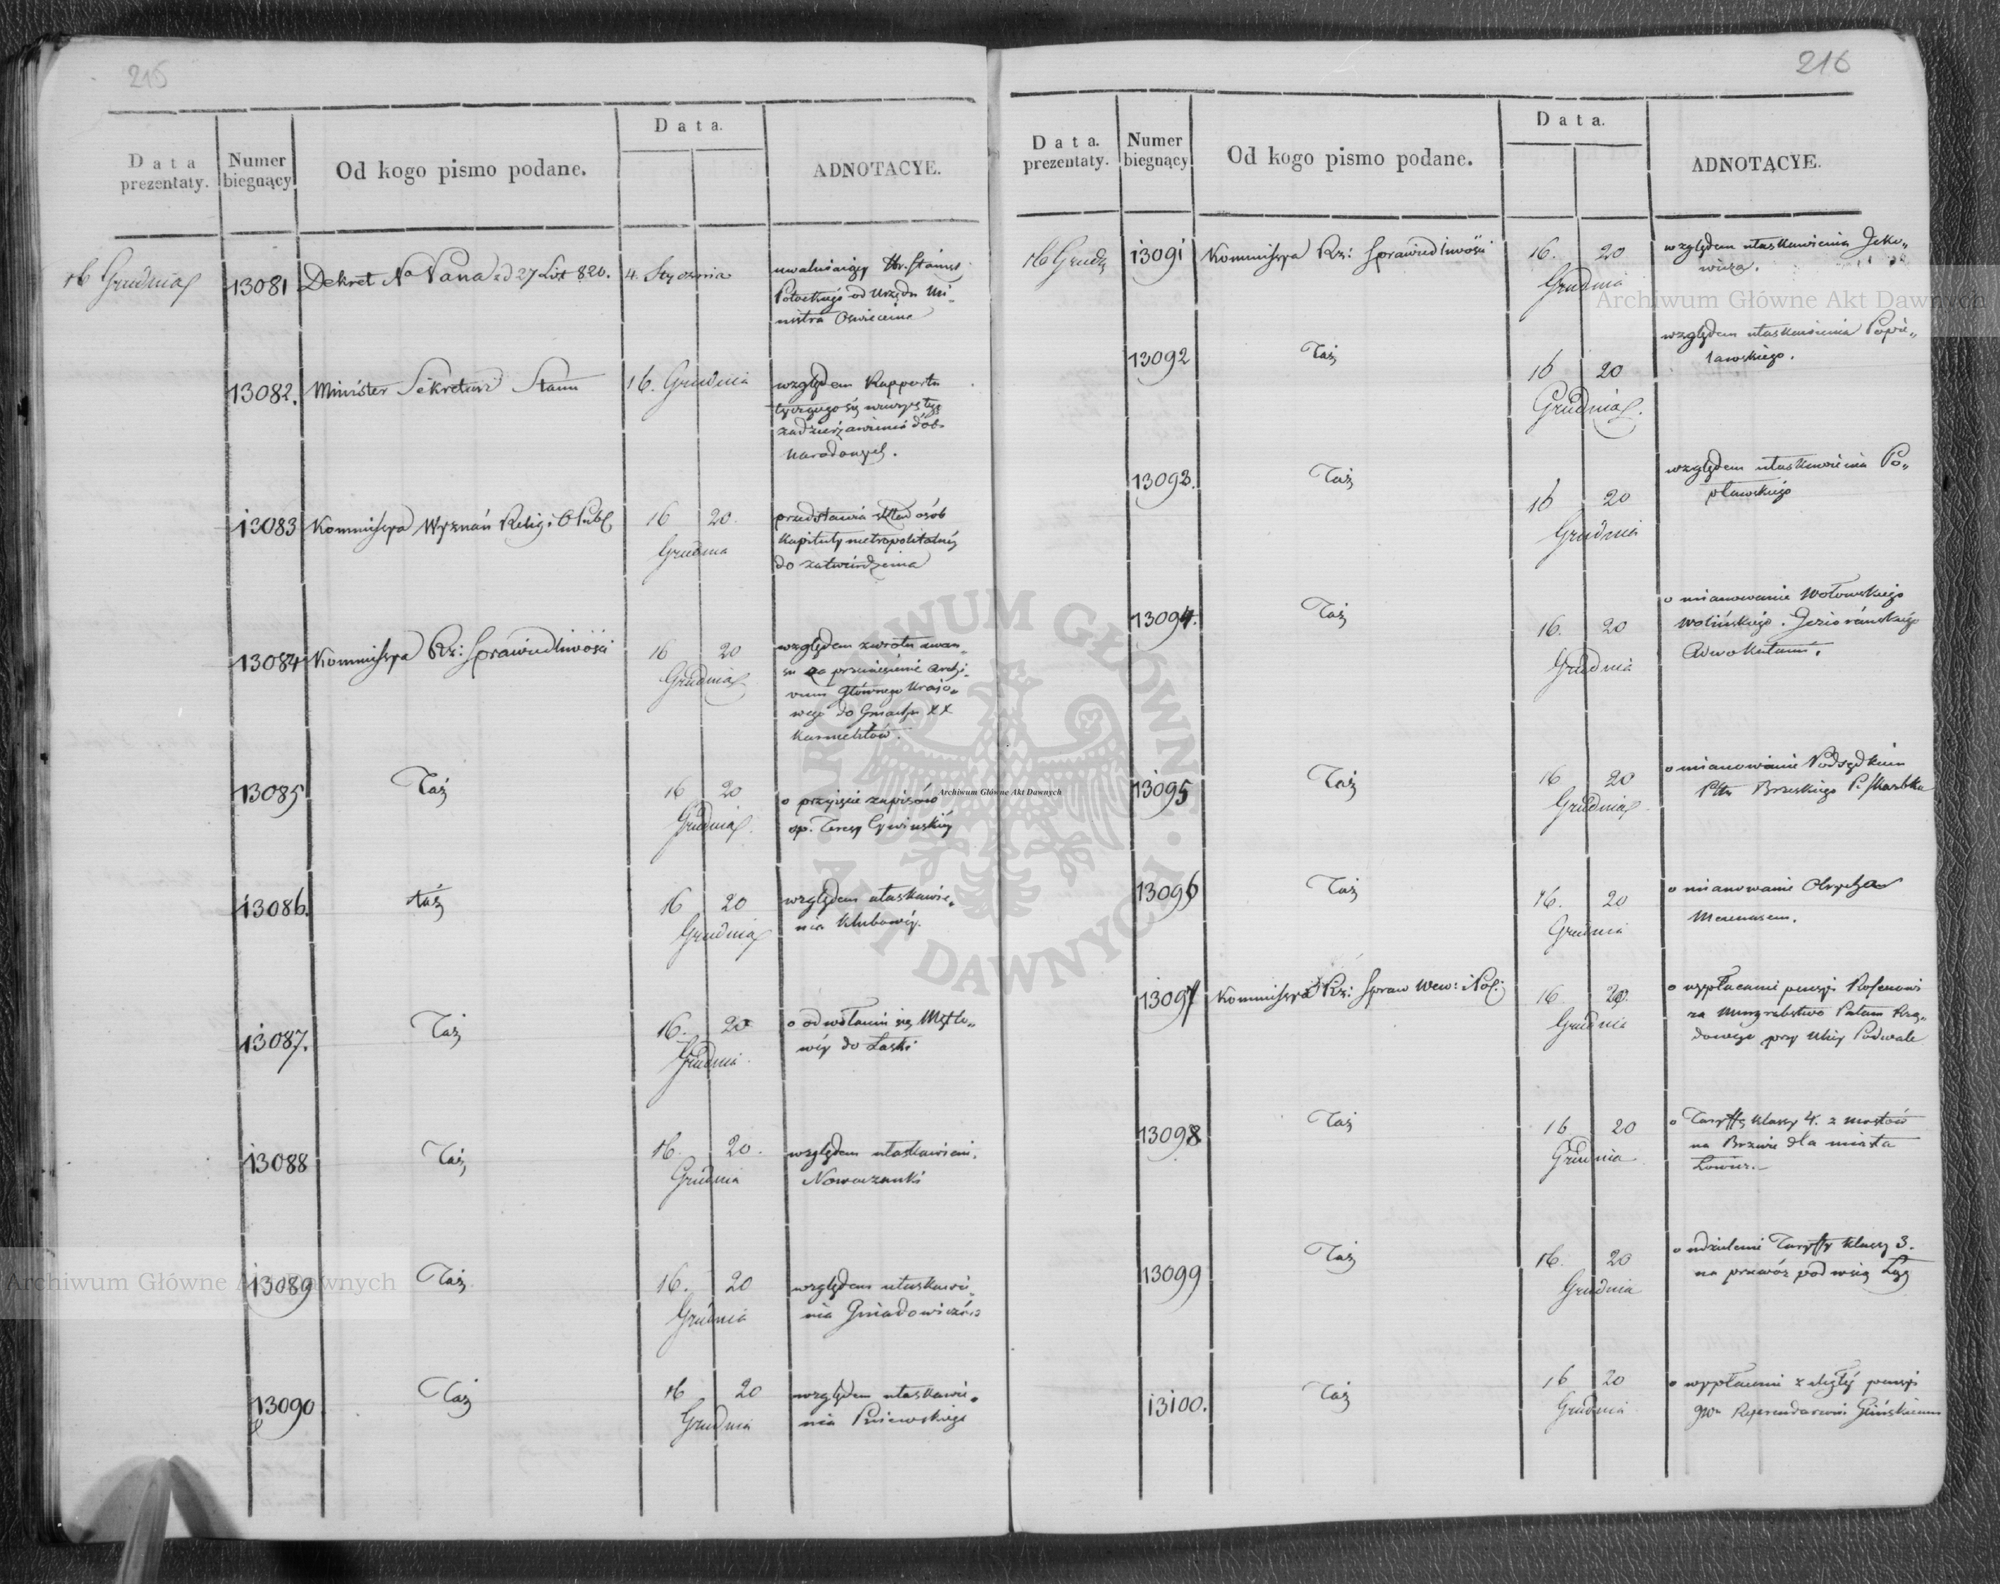 215
Data prezentaty.
Numer biegnący
Od kogo pismo podane.
Data.
ADNOTACYE.
16 Grudnia
13081
Dekret Na Pana z d 27 List 820.
4. Stycznia
uwalniaiący Hr. Stanis.
Potockiego od Urzędu Mi-
nistra Oświecenia
13082.
Minister Sekretarz Stanu
16. Grudnia
względem Rapportu
tyczącego się
zadzierżawienia dób.
Narodowych.
13083
Kommissya Wyznań Relig: i O Publ
16 20.
Grudnia
przedstawia skład osób
Kapituły metropolitalnej
do zatwierdzenia
13084
Kommissya Rz: Sprawiedliwości
16 20
Grudnia
względem zwrotu awan-
su za przeniesienie Archi-
wum Głównego Krajo-
wego do Gmachu XX
Karmelitów.
13085
Taż
16 20
Grudnia
o przyjęcie zapisów
op. Teresy Cywińskiej
13086.
taż
16 20
Grudnia
względem ułaskawie-
nia Klubowej.
13087.
Taż
16. 20
Grudnia.
o odwołaniu się
wej do Łaski
13088
Taż
16. 20.
Grudnia
względem ułaskawieni.
Nowaczanki
13089
Taż.
16. 20
Grudnia
względem ułaskawi-
nia
13090
Taż
16 20
Grudnia
względem ułaskawie-
nia Pniewskiego
216
Data. prezentaty.
Numer biegnący
Od kogo pismo podane.
Data.
ADNOTĄCYE.
16 Grud
13091
Kommissya Rz: Sprawiedliwości
16. 20
Grudnia
względem ułaskawienia Jeko-
wicza.
13092
Taż
16 20
Grudnia.
względem ułaskawienia Popie-
ławskiego.
13093.
Taż
16 20
Grudnia
względem ułaskawienia Po-
pławskiego
13094.
Taż
16. 20
Grudnia
o mianowanie Wołowskiego
Wolińskiego. Jeziorańskiego
Adwokatami.
13095
Taż
16 20
Grudnia
o mianowanie Podsędkiem
Pttu Brzeskiego P. Skarbka
13096
Taż
16. 20
Grudnia
o mianowanie
Mecenasem.
13097
Kommissya Rz: Spraw Wew: i Pol:
16. 20.
Grudnia
o wypłaceni pensyi
za Murgrabstwo Pałacu Rzą-
dowego przy Ulicy Podwale
13098
Taż
16 20
Grudnia
o Taryffę klassy 4. z mostów
na Bzurze dla miasta
Łowicz.
13099
Taż
16. 20
Grudnia
o udzieleni Taryffy klassy 3.
na przewóz pod wsią
13100.
Taż
16 20
Grudnia
o wypłaceni zległej pensyi
Referendarzowi Glińskiemu
Archiwum Główne Akt Dawnych
Archiwum Główne Akt Dawnych
Archiwum Główne Akt Dawnych
ARCHIWUM GŁÓWNE · AKT DAWNYCH ·